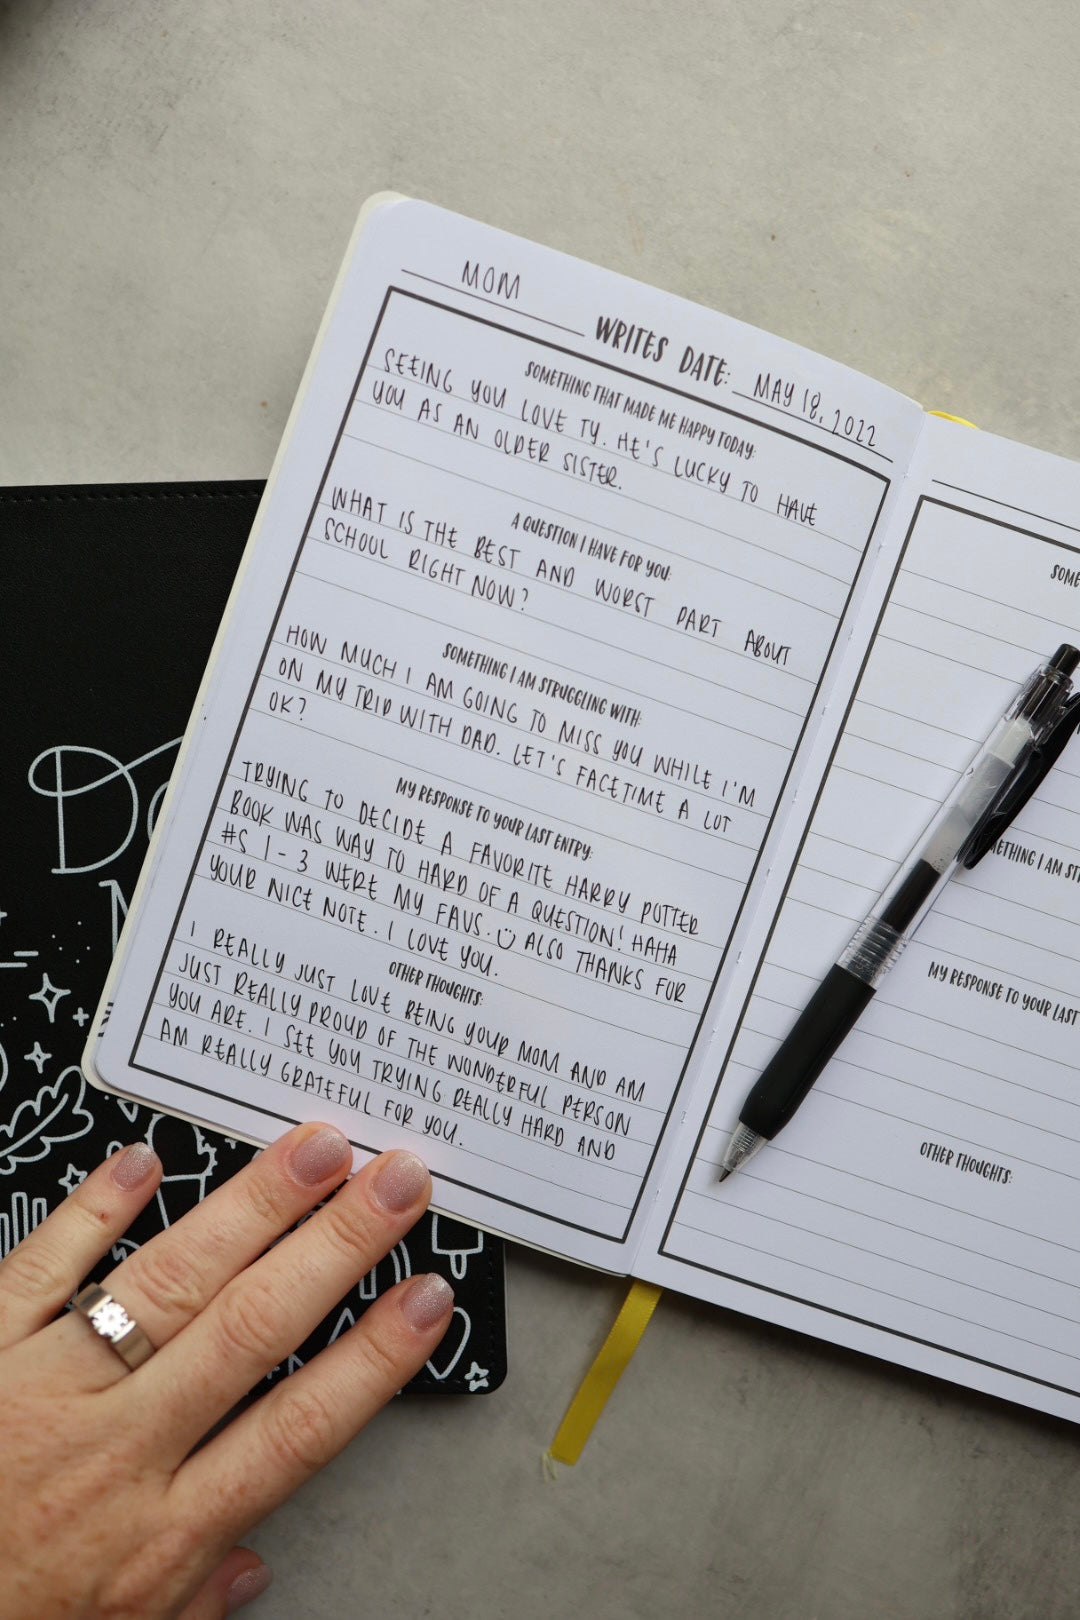 MOM
WRITES DATE: MAY 18, 2022
SOMETHING THAT MADE ME HAPPY TODAY:
SEEING YOU LOVE TY. HE'S LUCKY TO HAVE
YOU AS AN OLDER SISTER.
A QUESTION I HAVE FOR YOU:
WHAT IS THE BEST AND WORST PART ABOUT
SCHOOL RIGHT NOW?
SOMETHING I AM STRUGGLING WITH:
HOW MUCH I AM GOING TO MISS YOU WHILE I'M
ON MY TRIP WITH DAD. LET'S FACETIME A LOT
OK?
MY RESPONSE TO YOUR LAST ENTRY:
TRYING TO DECIDE A FAVORITE HARRY POTTER
BOOK WAS WAY TO HARD OF A QUESTION! HAHA
#S 1-3 WERE MY FAVS. ☺ ALSO THANKS FOR
YOUR NICE NOTE. I LOVE YOU.
OTHER THOUGHTS:
I REALLY JUST LOVE BEING YOUR MOM AND AM
JUST REALLY PROUD OF THE WONDERFUL PERSON
YOU ARE. I SEE YOU TRYING REALLY HARD AND
AM REALLY GRATEFUL FOR YOU.
MY RESPONSE TO YOUR LAST
OTHER THOUGHTS: